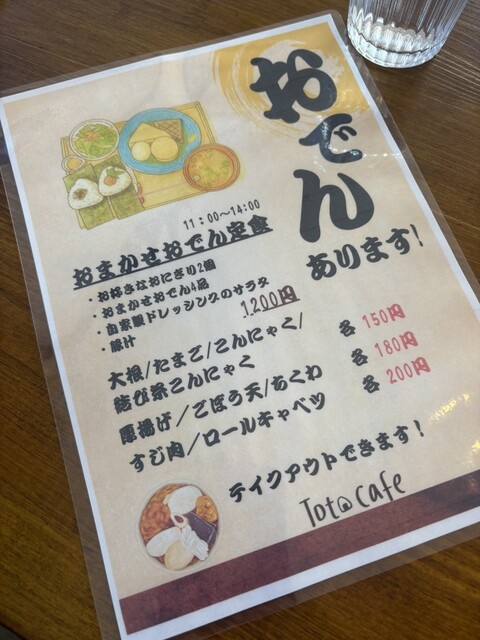 おでん
あります!
11:00~14:00
おまかせおでん定食
・お好きなおにぎり2個
・おまかせおでん4品
・自家製ドレッシングのサラダ
・豚汁
1200円
大根/たまご/こんにゃく/
結び糸こんにゃく
各 150円
厚揚げ/ごぼう天/ちくわ
各 180円
すじ肉/ロールキャベツ
各 200円
テイクアウトできます!
Toto cafe